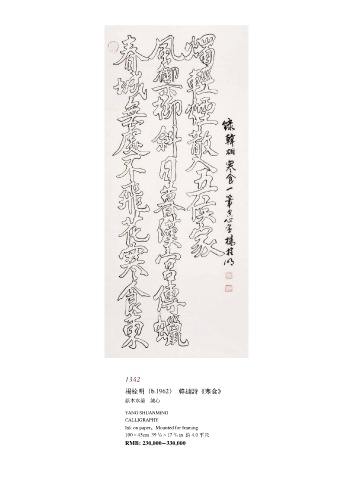 春城無處不飛花寒食東
風御柳斜日暮漢宮傳蠟
燭輕煙散入五侯家
錄韓翃寒食一筆空心字楊栓明
1342
楊栓明 (b.1962) 韓翃詩《寒食》
紙本水墨 鏡心
YANG SHUANMING
CALLIGRAPHY
Ink on paper, Mounted for framing
100 × 45cm 39 ⅜ × 17 ¾ in 約 4.0 平尺
RMB: 230,000－330,000